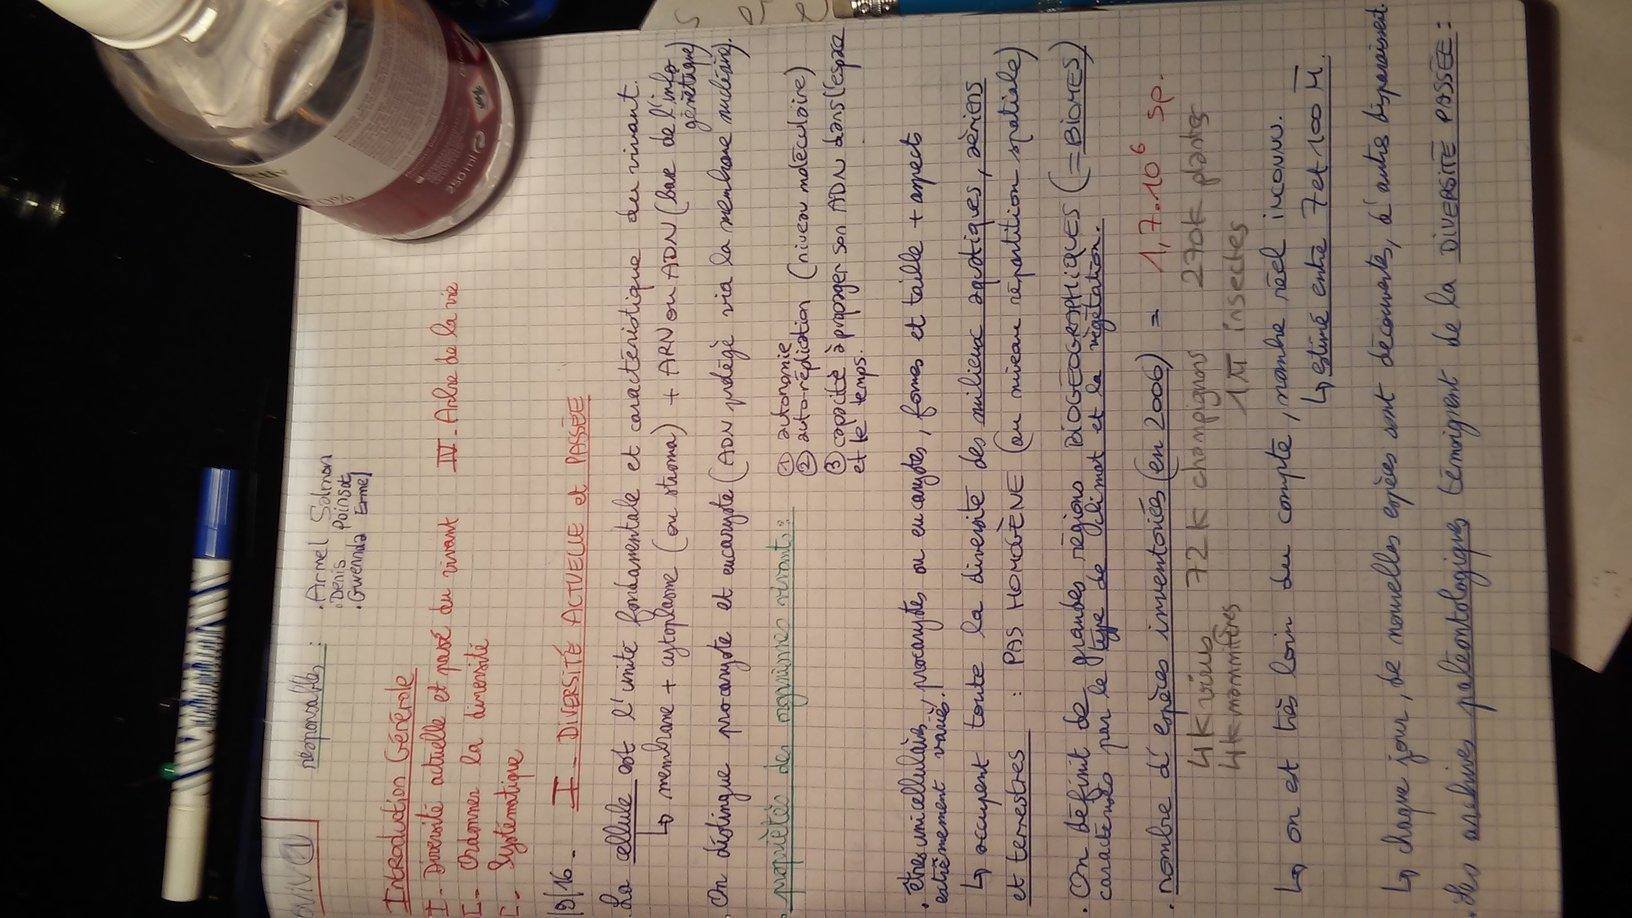 responsables : . Armel Salmon
. Denis Poinsot
. Gwennola Ermel
Introduction Générale
I - Diversité actuelle et passé du vivant IV - Arbre de la vie
la diversité
Systématique
I - DIVERSITÉ ACTUELLE et PASSÉE
. La cellule est l'unité fondamentale et caractéristique du vivant.
↳ membrane + cytoplasme (ou stroma) + ARN ou ADN (base de l'info génétique)
. On distingue procaryote et eucaryote (ADN protégé via la membrane nucléaire).
. propriétés des organismes vivants : ① autonomie
② auto-réplication (niveau moléculaire)
③ capacité à propager son ADN dans l'espace
et le temps.
. êtres unicellulaires, procaryotes ou eucaryotes, formes et taille + aspects
extrêmement variés.
↳ occupent toute la diversité des milieux aquatiques, aériens
et terrestres : PAS HOMOGÈNE (au niveau répartition spatiale)
. On définit de grandes régions BIOGÉOGRAPHIQUES (= BIOMES)
caractérisés par le type de climat et la végétation.
. nombre d'espèces inventoriées (en 2006) = 1,7.10⁶ sp.
4K virus 72K champignons 270K plantes
4K mammifères 1M insectes
↳ on est très loin du compte, nombre réel inconnu.
↳ estimé entre 7 et 100 M.
↳ chaque jour, de nouvelles espèces sont découvertes, d'autres disparaissent.
. Les archives paléontologiques témoignent de la DIVERSITÉ PASSÉE :
250 ml